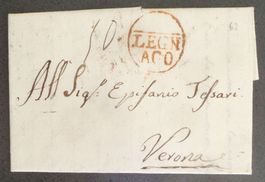 62
50.
LEGN
AGO
All Sigr. Epifanio Tessari.
Verona